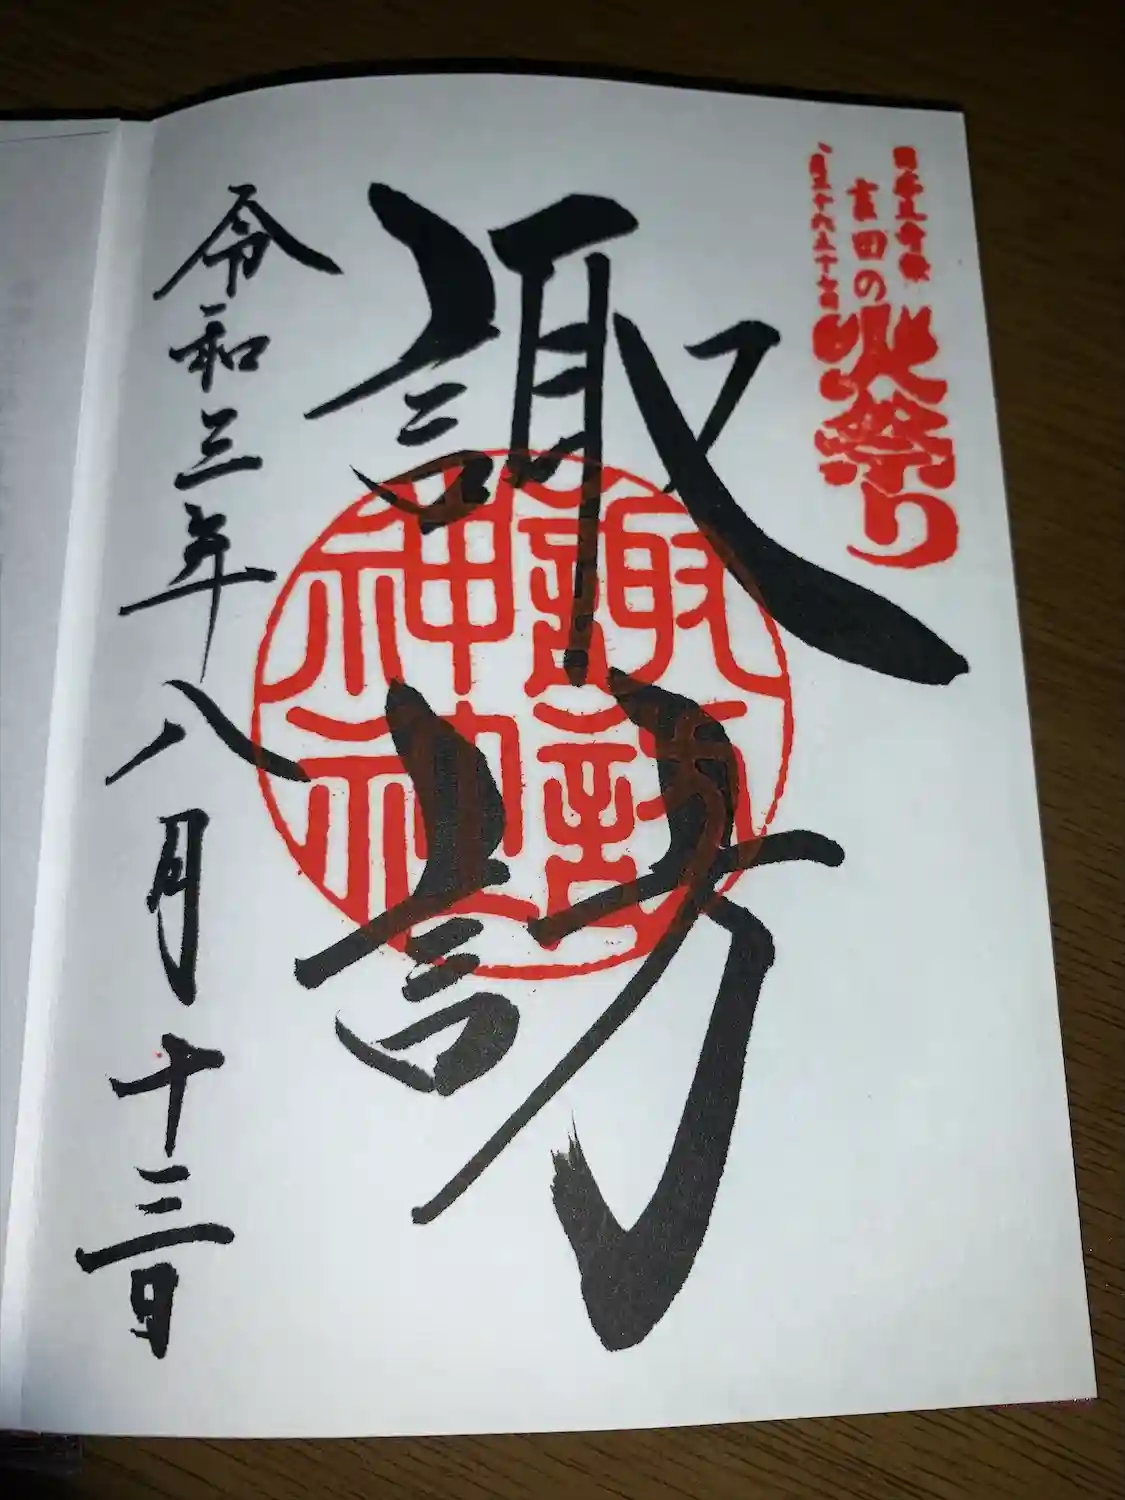 日本三奇祭
吉田の火祭り
八月二十六二十七日
諏訪
諏訪
神社
令和三年八月十三日